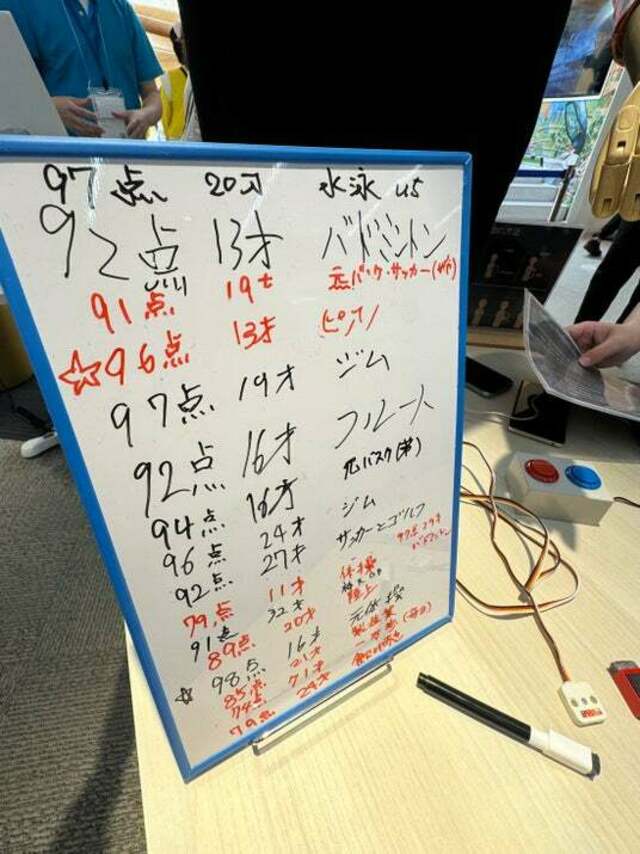 97点 20才 水泳
92点 13才 バドミントン
91点 19才 サッカー
☆96点 13才 ピアノ
97点 19才 ジム
92点 16才 フルート
94点 16才 元バスク
96点 24才 ジム
92点 27才 サッカーとゴルフ
79点 11才 体操
91点 32才
89点 20才 陸上
☆98点 16才 元体操
85点 21才
74点 71才
79点 29才